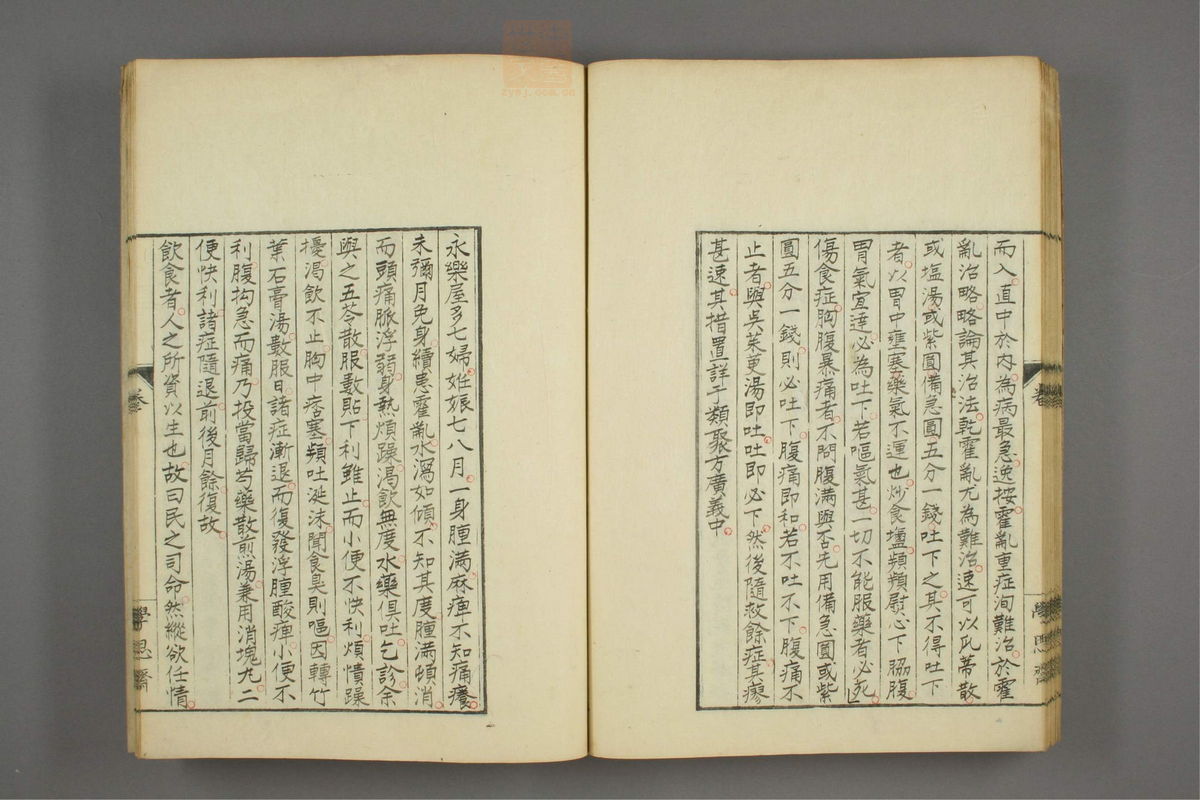 而入直中於内為病最急逸按霍亂重症洵難治於霍
亂治略略論其治法乾霍亂尤為難治速可以瓜蒂散
或塩湯或紫圓備急圓五分一錢吐下之其不得吐下
者以胃中壅塞藥氣不運也炒食塩頻頻慰心下脇腹
胃氣宣達必為吐下若嘔氣甚一切不能服藥者必死
傷食症胸腹暴痛者不問腹滿與否先用備急圓或紫
圓五分一錢則必吐下腹痛即和若不吐不下腹痛不
止者與吳茱萸湯即吐吐即必下然後隨救餘症其瘳
甚速其措置詳于類聚方廣義中
永樂屋多七婦妊娠七八月一身腫滿麻痺不知痛癢
未彌月免身續患霍亂水瀉如傾不知其度腫滿頓消
而頭痛脈浮弱身熱煩躁渴飲無度水藥俱吐乞診余
與之五苓散服數貼下利雖止而小便不快利煩憒躁
擾渴飲不止胸中痞塞頻吐涎沫聞食臭則嘔因轉竹
葉石膏湯數服日諸症漸退而復發浮腫酸痺小便不
利腹拘急而痛乃投當歸芍藥散煎湯兼用消塊丸二
便快利諸症隨退前後月餘復故
飲食者人之所資以生也故曰民之司命然縱欲任情
卷
學思齋
zysj.com.cn